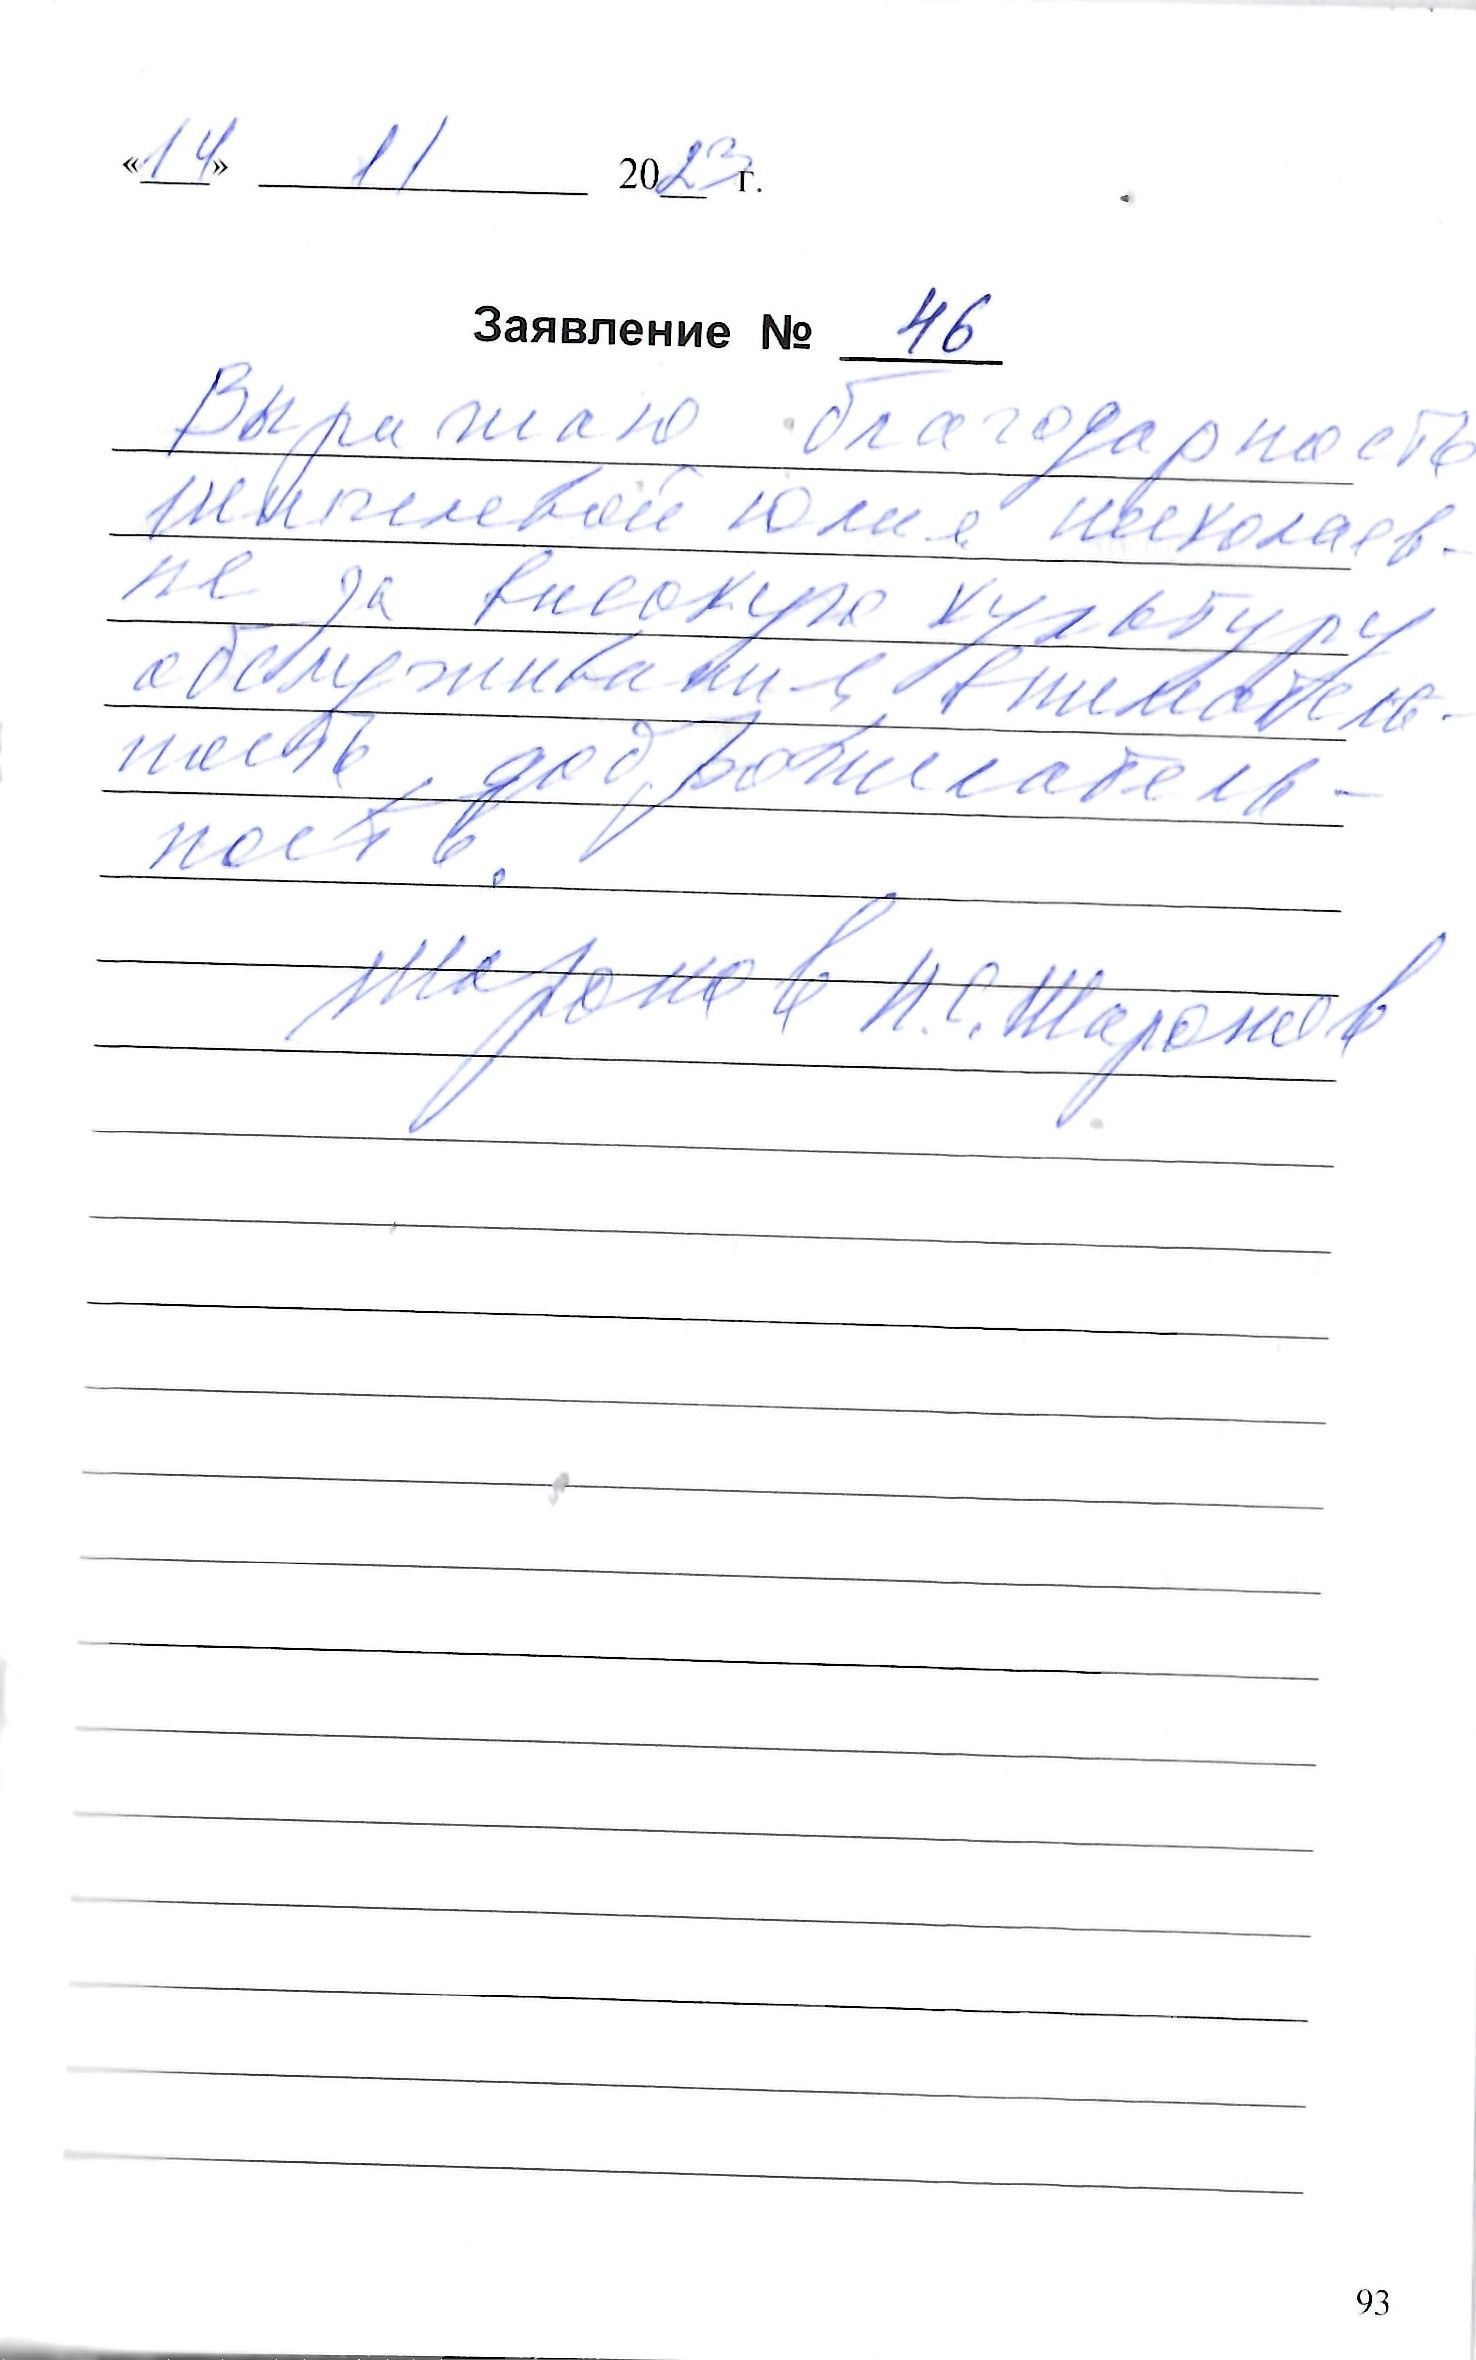 «14» 11 2023 г.
Заявление № 46
Выражаю благодарность
Юлие Николаев-
не за высокую культуру
обслуживания, вниматель-
ность, доброжелатель-
ность.
Шаронов Н.С. Шаронов
93